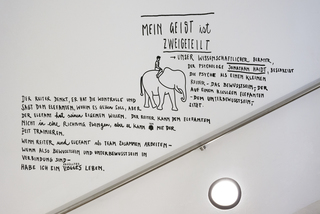 MEIN GEIST ist
ZWEIGETEILT
→ UNSER WISSENSCHAFTLICHER BERATER,
DER PSYCHOLOGE JONATHAN HAIDT, BESCHREIBT
DIE PSYCHE ALS EINEN KLEINEN
REITER - DAS BEWUSSTSEIN, DER
AUF EINEM RIESIGEN ELEFANTEN
- DEM UNTERBEWUSSTSEIN -
SITZT.
DER REITER DENKT, ER HAT DIE KONTROLLE UND
SAGT DEM ELEFANTEN, WOHIN ES GEHEN SOLL, ABER
DER ELEFANT hat seinen EIGENEN WILLEN. DER REITER KANN DEM ELEFANTEN
NICHT in eine RICHTUNG ZWINGEN, aber ER KANN MIT DER
ZEIT TRAINIEREN.
WENN REITER und ELEFANT ALS TEAM ZUSAMMEN ARBEITEN -
WENN ALSO BEWUSSTSEIN UND UNTERBEWUSSTSEIN IN
VERBINDUNG SIND -
HABE ICH EIN LEBEN.